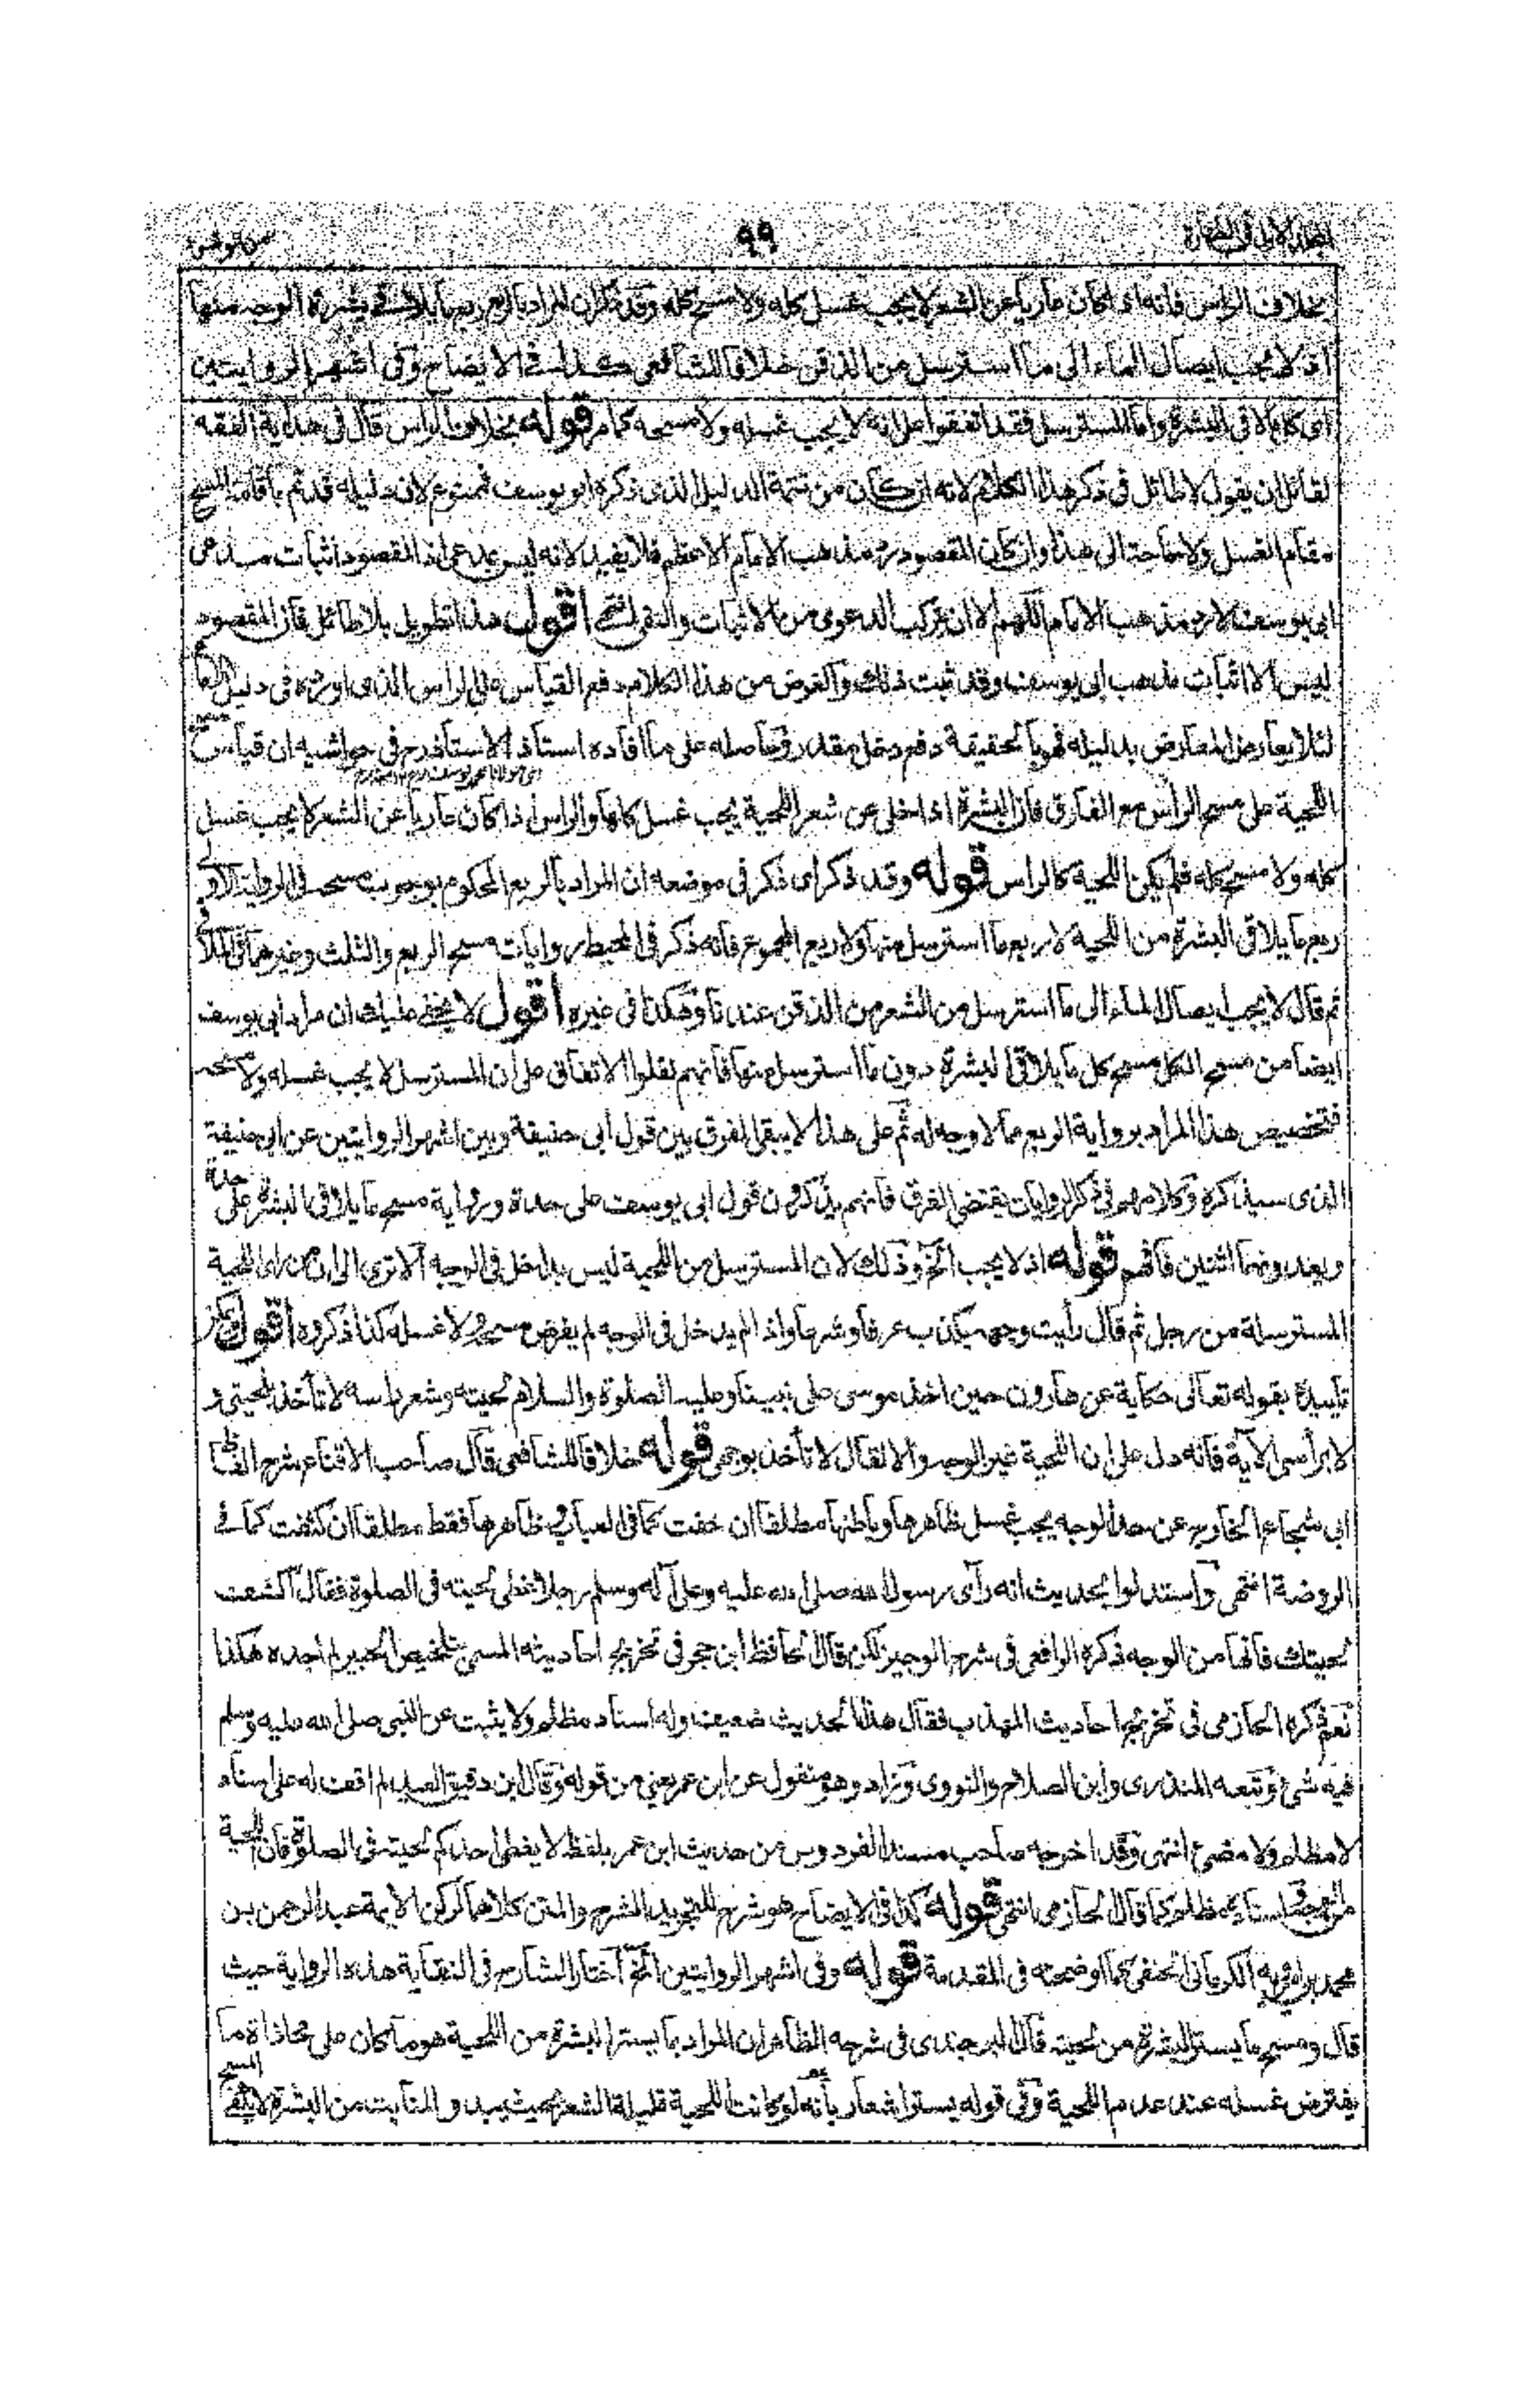 المجلد الاول فى الطهارة ٩٩
بخلاف الراس فانه اذا كان عاريا عن الشعر لا يجب غسل كله ولا مسح كله وقد ذكر ان المراد بالربع ربع ما يلاقى بشرة الوجه منها
اذ لا يجب ايصال الماء الى ما استرسل من الذقن خلافا للشافعى كذا فى الايضاح وفى اشهر الروايتين
اى كل ما لاقى البشرة واما المسترسل فقد اتفقوا على انه لا يجب غسله ولا مسحه كما مر قوله بخلاف الراس قال فى هداية الفقه
لقائل ان يقول لا طائل فى ذكر هذا الكلام لانه ان كان من تتمة الدليل الذى ذكره ابو يوسف فممنوع لان دليله قد تم باقامة المسح
مقام الغسل ولا حاجة الى هذا وان كان المقصود رد مذهب الامام الاعظم فلا يفيد لانه ليس بمدعى اذ المقصود اثبات مدعى
ابى يوسف لا رد مذهب الامام اللهم الا ان يركب الدعوى من الاثبات والنفى انتهى اقول هذا تطويل بلا طائل فان المقصود
ليس الا اثبات مذهب ابى يوسف وقد ثبت ذلك والغرض من هذا الكلام دفع القياس على الراس الذى اورده فى دليل الامام
لئلا يعارض المعارض بدليله فهو بالحقيقة دفع دخل مقدر وحاصله على ما افاده استاذ الاستاذ رح فى حواشيه ان قياس مسح
اللحية على مسح الراس مع الفارق فان البشرة اذا خلى عن شعر اللحية يجب غسل كلها والراس اذا كان عاريا عن الشعر لا يجب غسل
كله ولا مسح كله فلم يكن اللحية كالراس قوله وقد ذكر اى ذكر فى موضعه ان المراد بالربع المحكوم بوجوب مسحه فى الرواية الاولى
ربع ما يلاقى البشرة من اللحية لا ربع ما استرسل منها ولا ربع المجموع فانه ذكر فى المحيط روايات مسح الربع والثلث وغيرهما فى الملاقى
ثم قال لا يجب ايصال الماء الى ما استرسل من الشعر من الذقن عندنا وهكذا فى غيره اقول لا يخفى عليك ان مراد ابى يوسف
ايضا من مسح الكل مسح كل ما يلاقى البشرة دون ما استرسل منها فانهم نقلوا الاتفاق على ان المسترسل لا يجب غسله ولا مسحه
فتخصيص هذا المراد برواية الربع مما لا وجه له ثم على هذا لا يبقى الفرق بين قول ابى حنيفة وبين اشهر الروايتين عن ابى حنيفة
الذى سيذكره وكلامهم فى ذكر الروايات يقتضى الفرق فانهم يذكرون قول ابى يوسف على حدة ورواية مسح ما يلاقى البشرة على حدة
ويعدونهما اثنتين فافهم قوله اذ لا يجب الخ وذلك لان المسترسل من اللحية ليس بداخل فى الوجه الا ترى الى ان من راى اللحية
المسترسلة من رجل ثم قال رأيت وجهه يكذب عرفا وشرعا واذا لم يدخل فى الوجه لم يفرض مسحه ولا غسله كذا ذكروه اقول يمكن
تاييده بقوله تعالى حكاية عن هارون حين اخذ موسى على نبينا وعليه الصلوة والسلام لحيته وشعر راسه لا تأخذ بلحيتى و
لا برأسى الآية فانه دل على ان اللحية غير الوجه والا لقال لا تأخذ بوجهى قوله خلافا للشافعى قال صاحب الاقناع شرح الفاظ
ابى شجاع الخارج عن حد الوجه يجب غسل ظاهرها وباطنها مطلقا ان خفت كما فى العباب وظاهرها فقط مطلقا ان كثفت كما فى
الروضة انتهى واستدلوا بحديث انه رأى رسول الله صلى الله عليه وعلى آله وسلم رجلا غطى لحيته فى الصلوة فقال اكشف
لحيتك فانها من الوجه ذكره الرافعى فى شرح الوجيز لكن قال الحافظ ابن حجر فى تخريج احاديثه المسمى بتلخيص الحبير لم اجده هكذا
نعم ذكره الحازمى فى تخريج احاديث المهذب فقال هذا الحديث ضعيف وله اسناد مظلم ولا يثبت عن النبى صلى الله عليه وسلم
فيه شئ وتبعه المنذرى وابن الصلاح والنووى وزاد وهو منقول عن ابن عمر يعنى من قوله وقال ابن دقيق العيد لم اقف له على اسناد
لا مظلم ولا مضئ انتهى وقد اخرجه صاحب مسند الفردوس من حديث ابن عمر بلفظ لا يغطى احدكم لحيته فى الصلوة فان اللحية
من الوجه واسناده مظلم كما قال الحازمى انتهى قوله كذا فى الايضاح هو شرح للتجريد الشرح والمتن كلاهما لركن الايمة عبد الرحمن بن
محمد بن اميرويه الكرمانى الحنفى كما اوضحته فى المقدمة قوله وفى اشهر الروايتين الخ اختار الشارح فى النقاية هذه الرواية حيث
قال ومسح ما يستر البشرة من لحيته قال البرجندى فى شرحه الظاهر ان المراد بما يستر البشرة من اللحية هو ما كان على محاذاة ما
يفترض غسله عند عدم اللحية وفى قوله يستر اشعار بأنه لو كانت اللحية قليلة الشعر بحيث يبدو المنابت من البشرة لا يكفى المسح